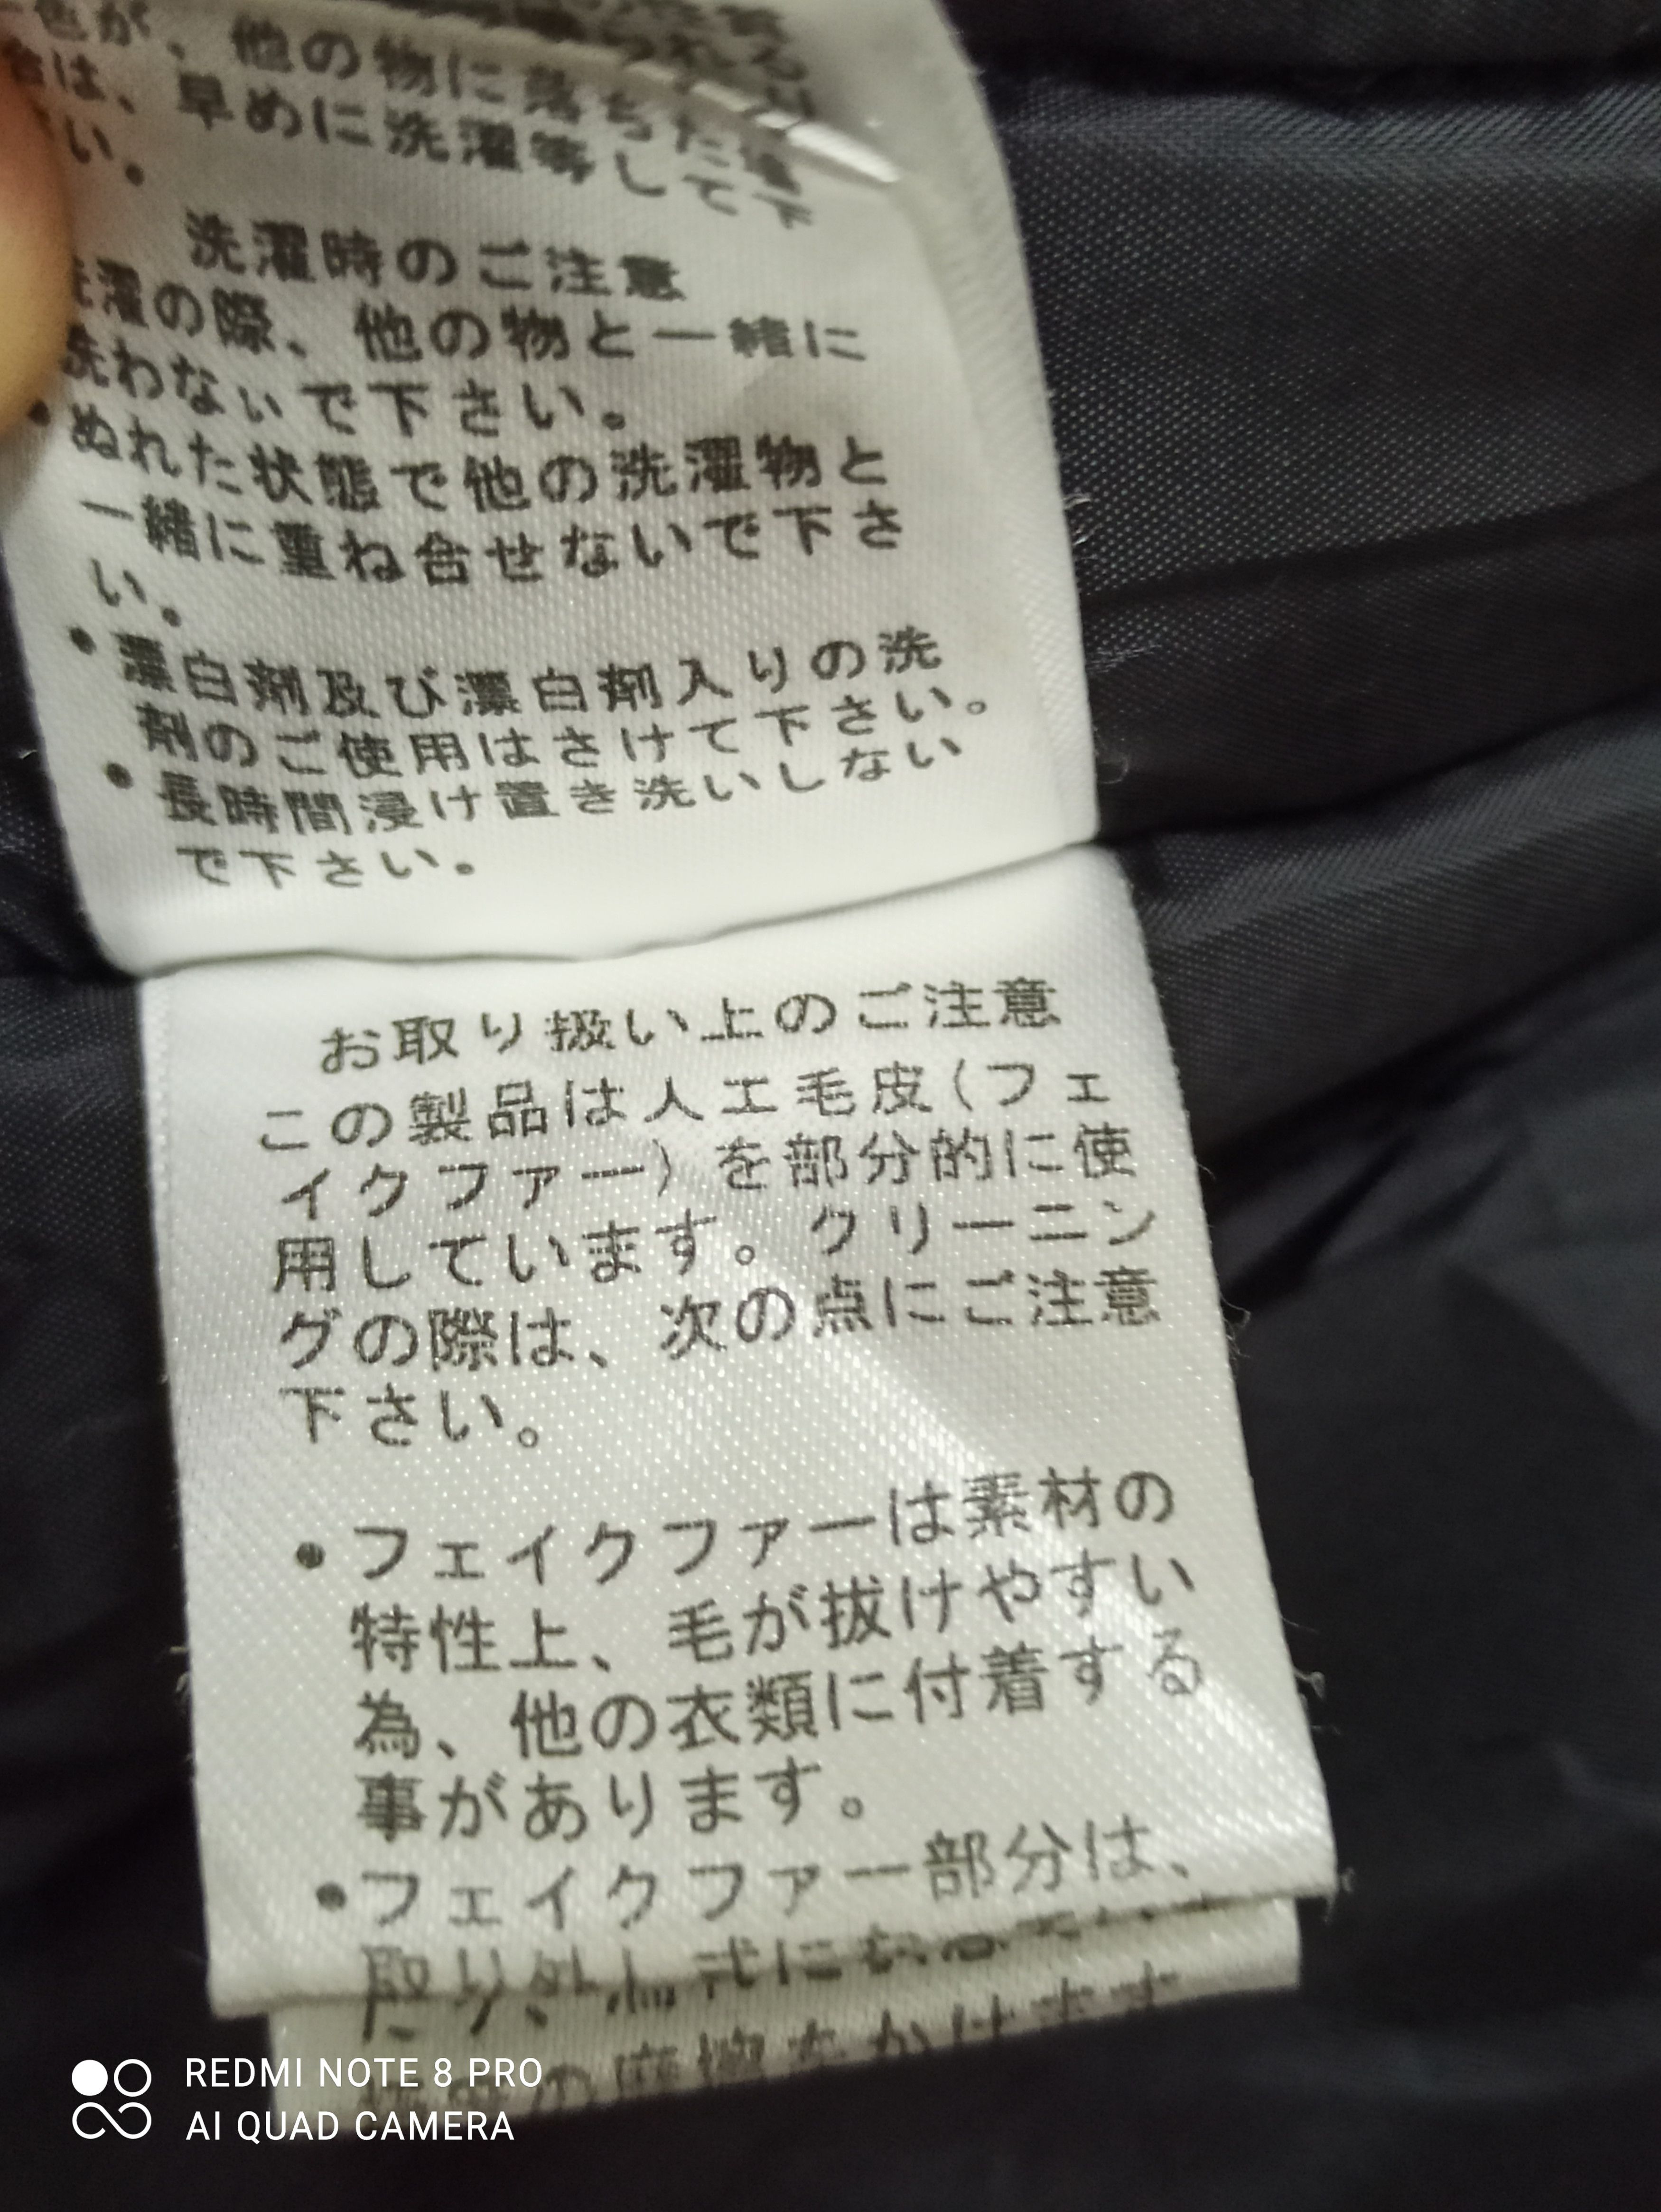 色が、他の物に落ちた
は、早めに洗濯等して下
い。
洗濯時のご注意
濯の際、他の物と一緒に
洗わないで下さい。
・ぬれた状態で他の洗濯物と
一緒に重ね合せないで下さ
い。
・漂白剤及び漂白剤入りの洗
剤のご使用はさけて下さい。
・長時間浸け置き洗いしない
で下さい。
お取り扱い上のご注意
この製品は人工毛皮(フェ
イクファー)を部分的に使
用しています。クリーニン
グの際は、次の点にご注意
下さい。
・フェイクファーは素材の
特性上、毛が抜けやすい
為、他の衣類に付着する
事があります。
・フェイクファー部分は、
取り外し式に
の摩擦をかけます
REDMI NOTE 8 PRO
AI QUAD CAMERA